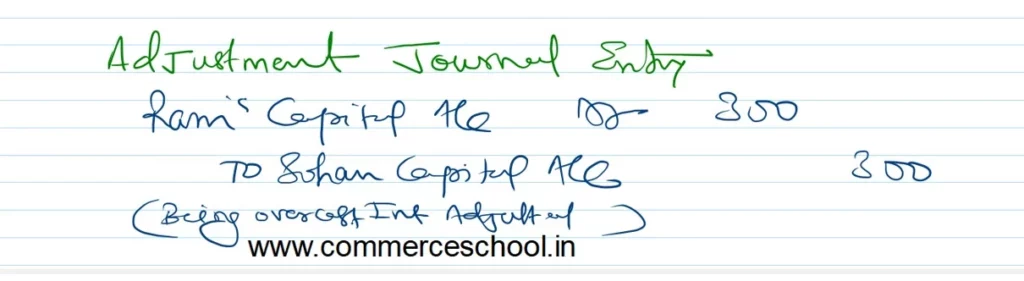 Adjustment Journal Entry
Ram's Capital A/c Dr 300
To Sohan Capital A/c 300
(Being overcast Int Adjusted)
www.commerceschool.in